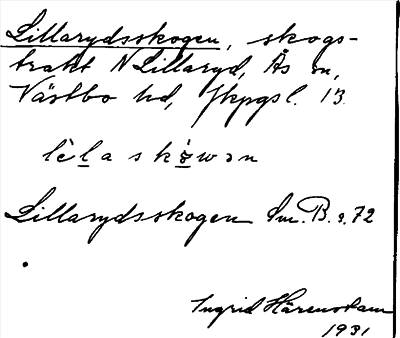 Lillarydsskogen, skogs-
trakt N Lillaryd, Ås sn,
Västbo hd, Jkpgs l. 13.
Lillarydsskogen Sm. B. s. 72
Ingrid Härenstam
1931